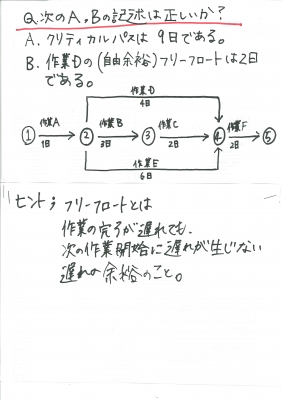 Q.次のA,Bの記述は正しいか?
A.クリティカルパスは9日である。
B.作業Dの(自由余裕)フリーフロートは2日
である。
作業D
4日
① 作業A 1日 ② 作業B 3日 ③ 作業C 2日 ④ 作業F 2日 ⑤
作業E
6日
ヒント;フリーフロートとは
作業の完了が遅れても、
次の作業開始に遅れが生じない
遅れの余裕のこと。